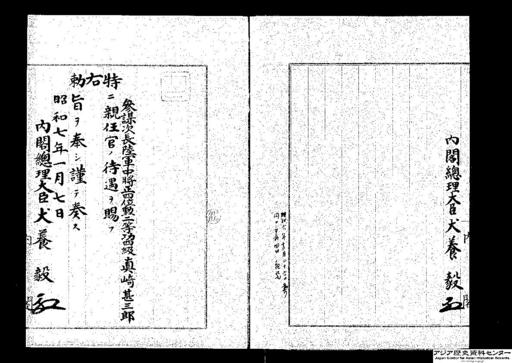 内閣總理大臣犬養毅
參謀次長陸軍中將正四位勲二等功四級眞崎甚三郎
特ニ親任官ノ待遇ヲ賜フ
右勅旨ヲ奉シ謹テ奏ス
昭和七年一月七日
内閣總理大臣犬養毅
アジア歴史資料センター
Japan Center for Asian Historical Records